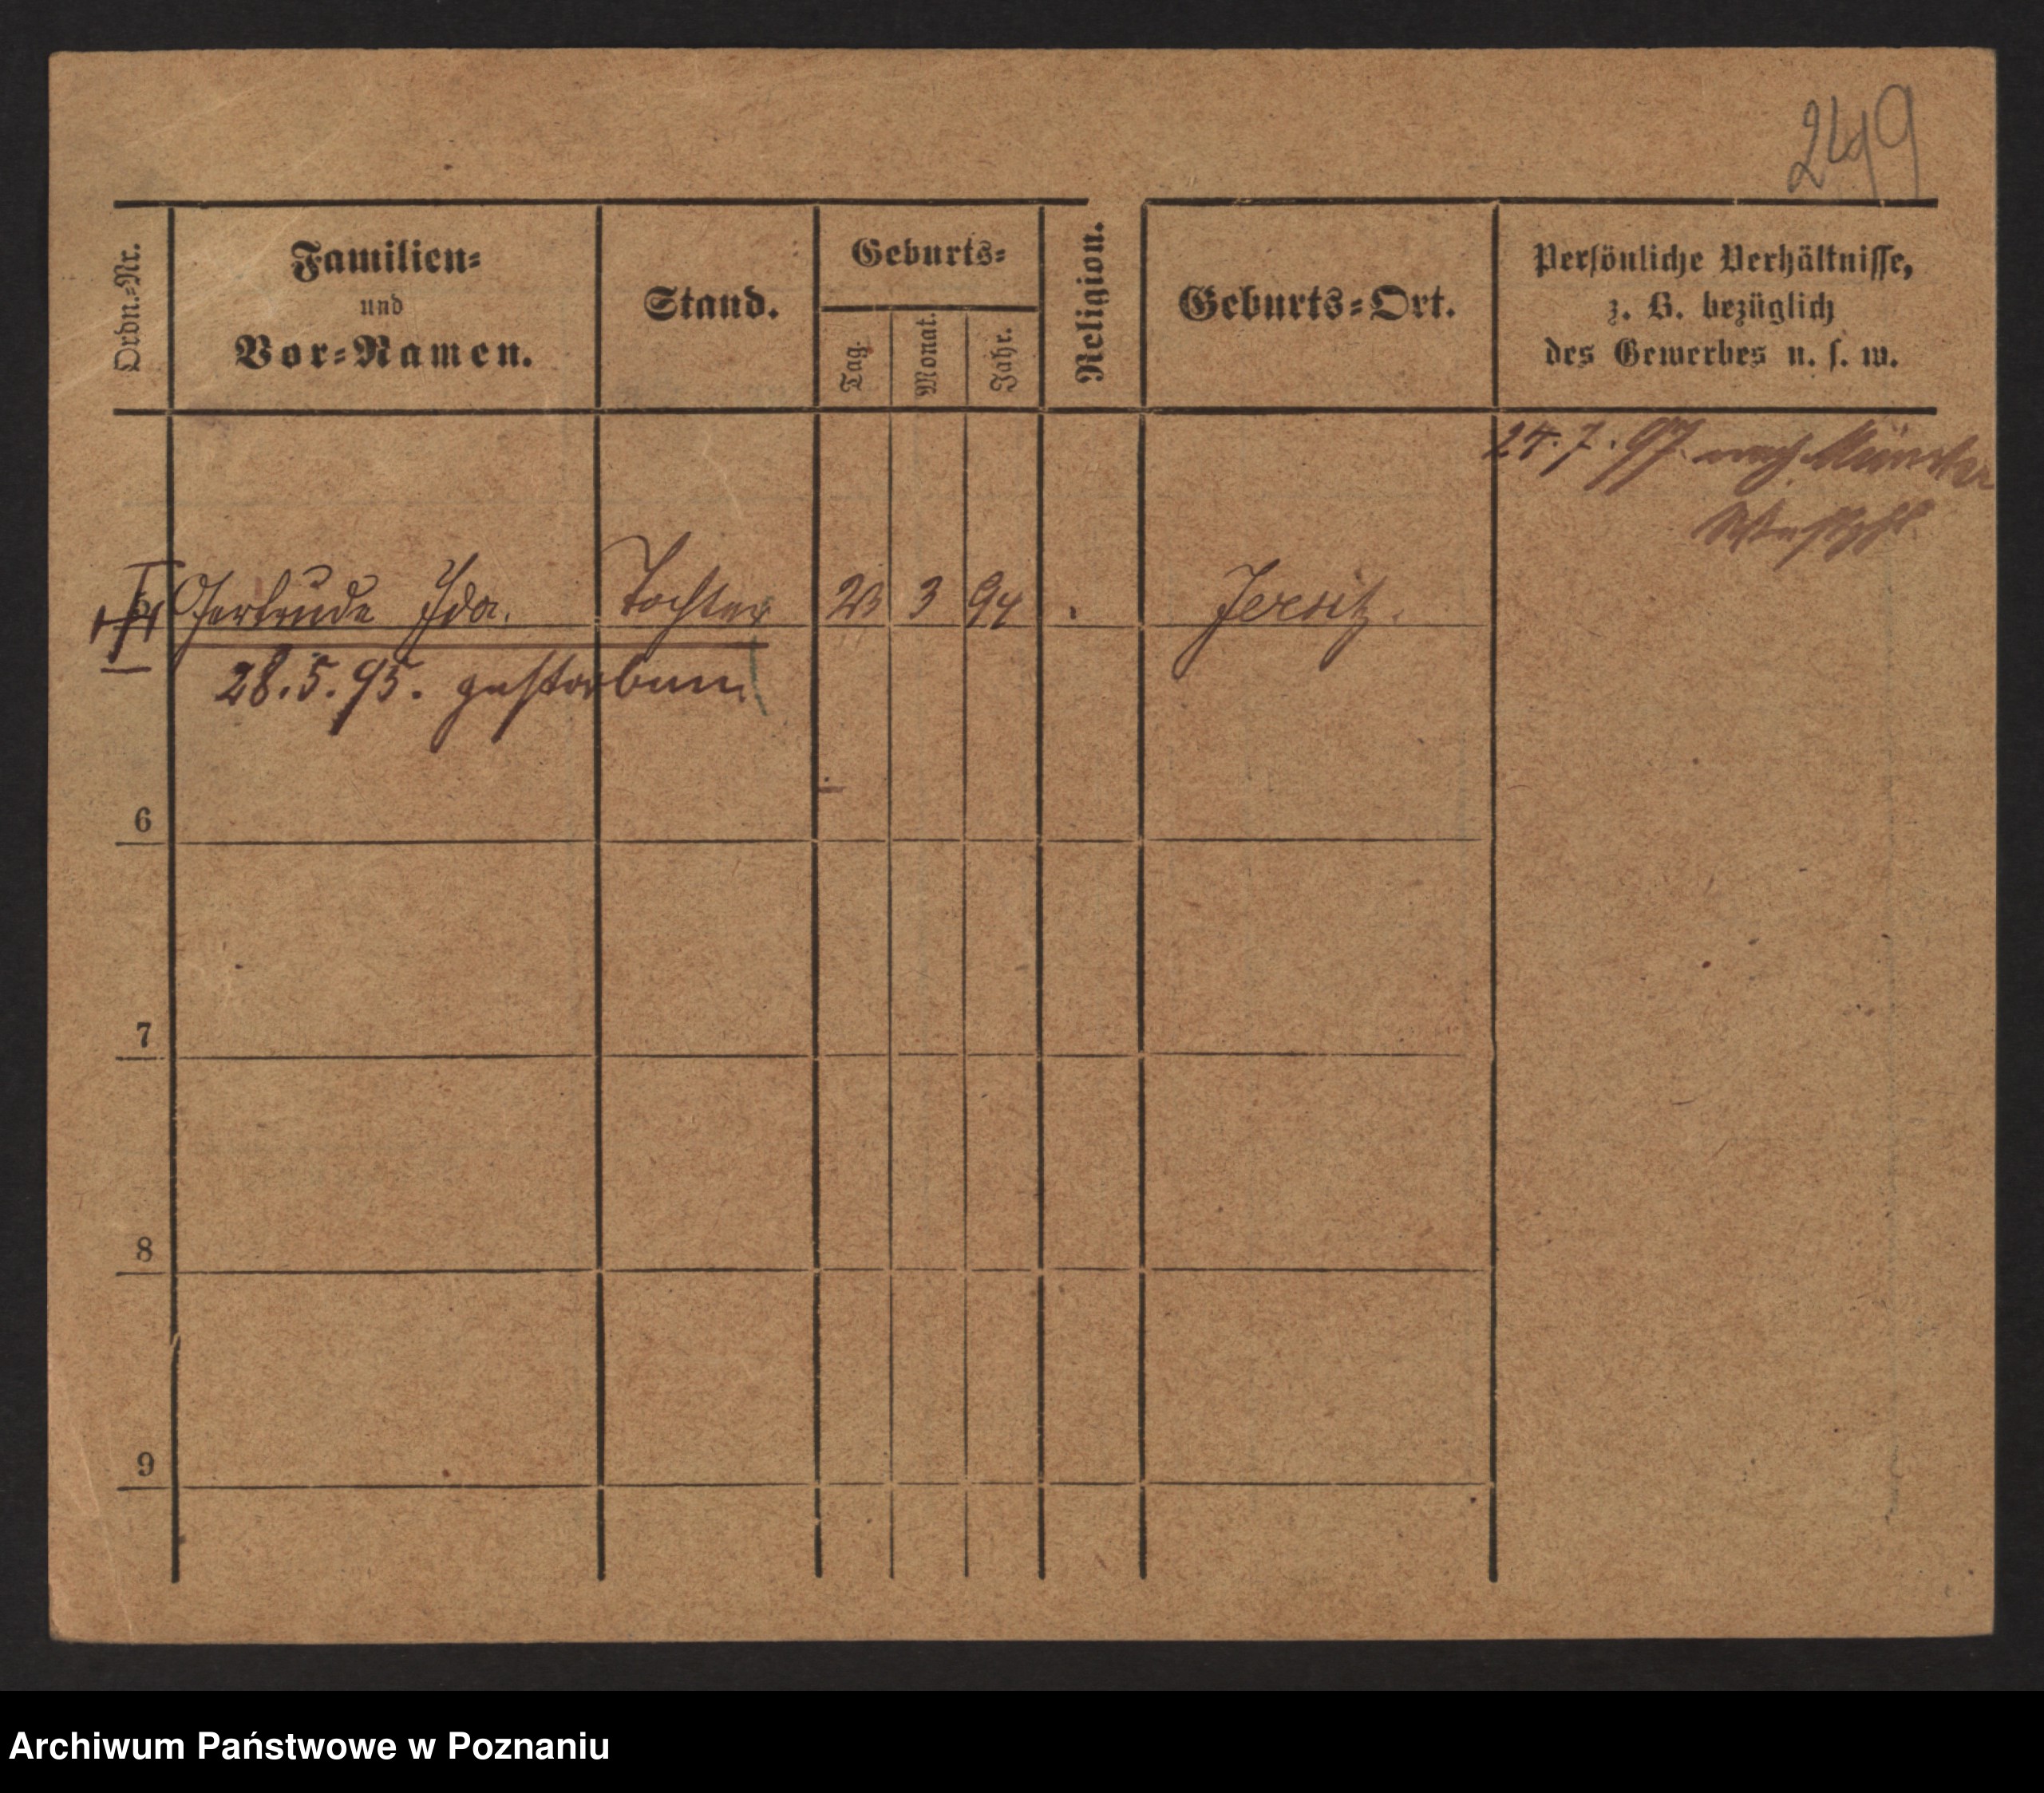 249
Ordn.-Nr.
Familien-
und
Vor-Namen.
Stand.
Geburts-
Tag.
Monat.
Jahr.
Religion.
Geburts-Ort.
Persönliche Verhältnisse,
z. B. bezüglich
des Gewerbes u. s. w.
24.7.97. nach Münster
Westph.
5 Gertrude Ida. Tochter 23 3 94 Jersitz.
28.5.95. gestorben
6
7
8
9
Archiwum Państwowe w Poznaniu